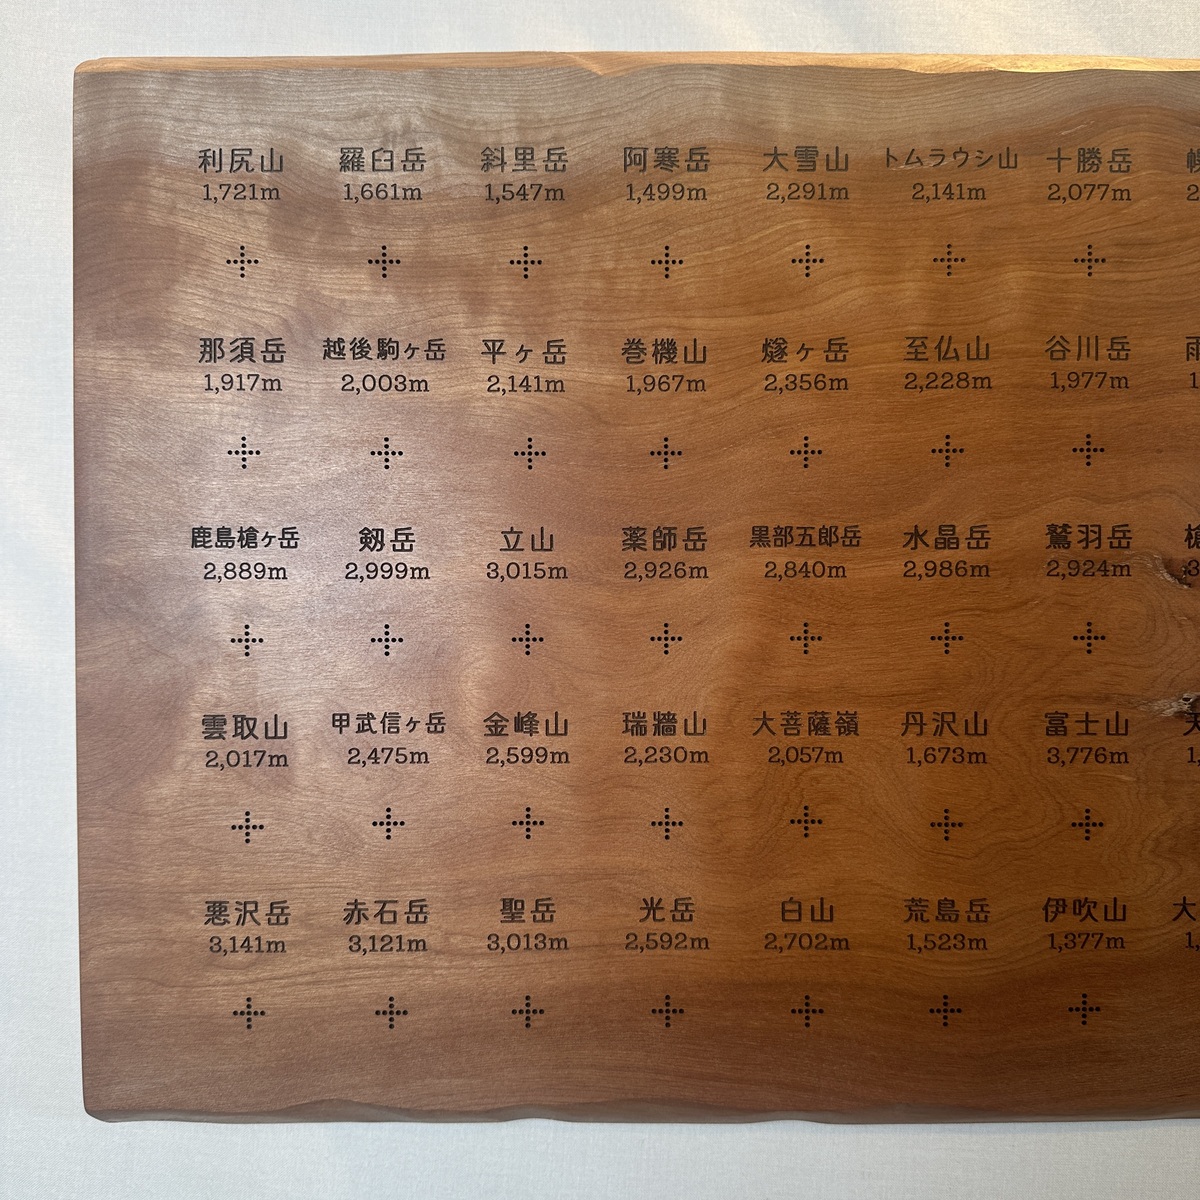 利尻山 羅臼岳 斜里岳 阿寒岳 大雪山 トムラウシ山 十勝岳
1,721m 1,661m 1,547m 1,499m 2,291m 2,141m 2,077m
那須岳 越後駒ヶ岳 平ヶ岳 巻機山 燧ヶ岳 至仏山 谷川岳
1,917m 2,003m 2,141m 1,967m 2,356m 2,228m 1,977m
鹿島槍ヶ岳 剱岳 立山 薬師岳 黒部五郎岳 水晶岳 鷲羽岳
2,889m 2,999m 3,015m 2,926m 2,840m 2,986m 2,924m
雲取山 甲武信ヶ岳 金峰山 瑞牆山 大菩薩嶺 丹沢山 富士山
2,017m 2,475m 2,599m 2,230m 2,057m 1,673m 3,776m
悪沢岳 赤石岳 聖岳 光岳 白山 荒島岳 伊吹山 大
3,141m 3,121m 3,013m 2,592m 2,702m 1,523m 1,377m